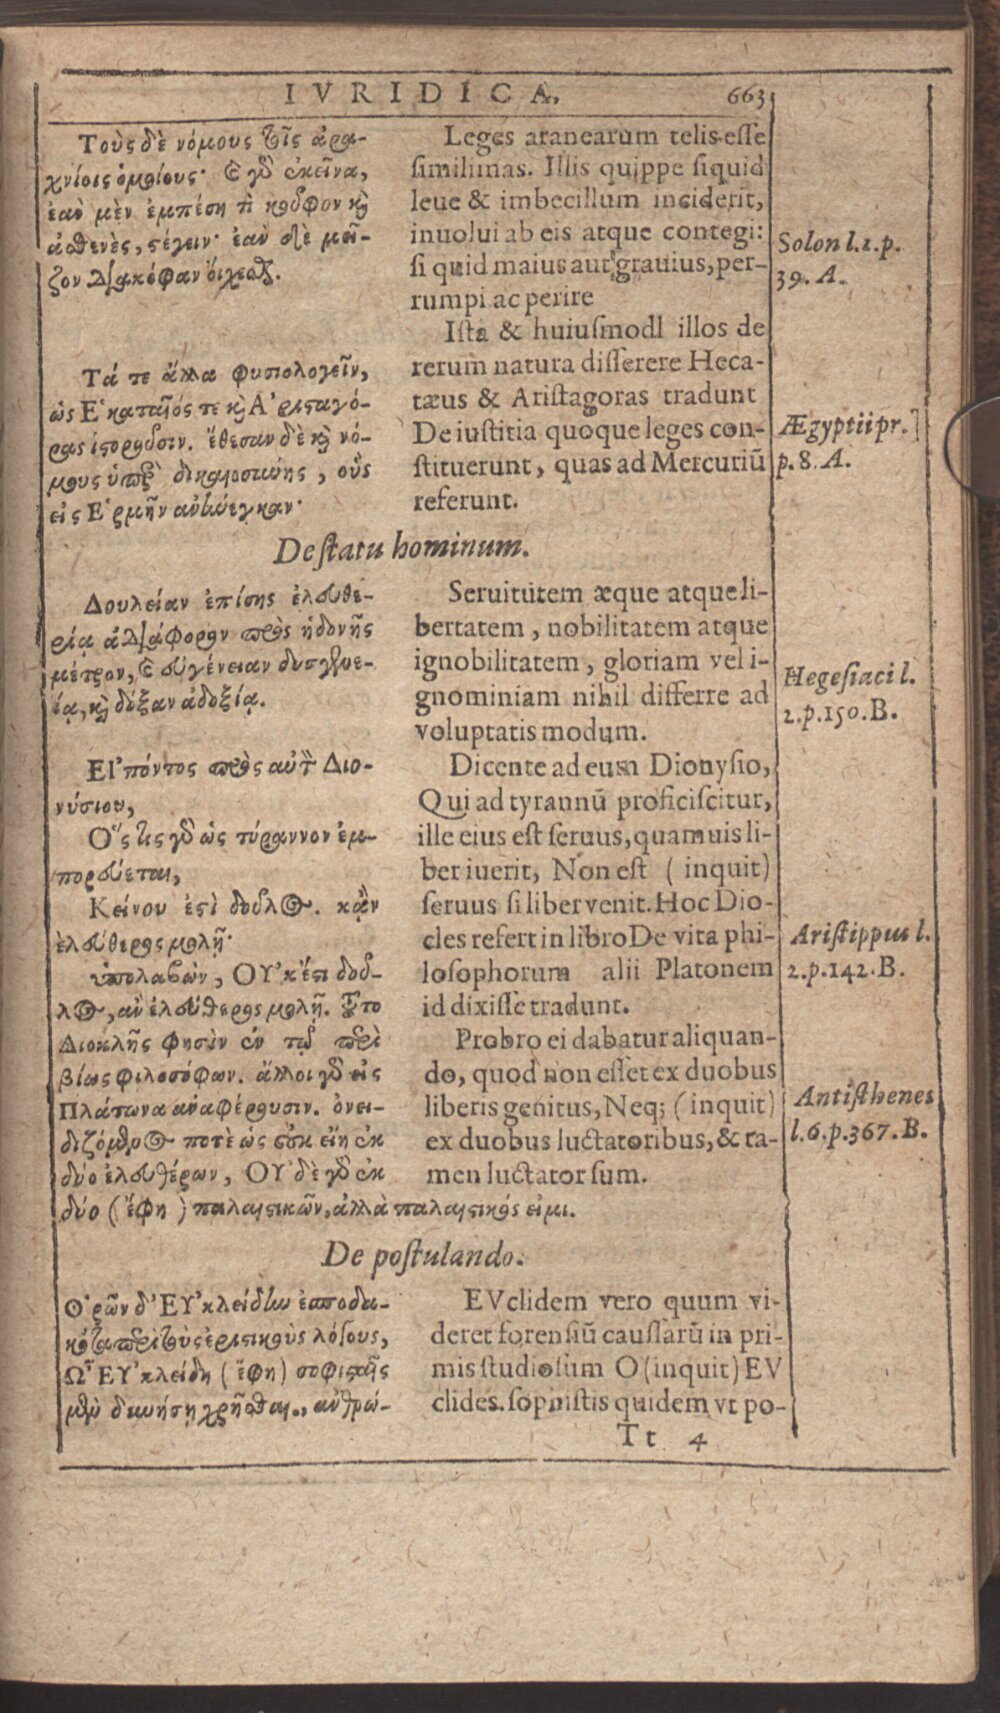 IVRIDICA. 663
Τοὺς δὲ νόμους τοῖς ἀρα-
χνίοις ὁμοίους· καὶ γὰρ ἐκεῖνα,
ἐὰν μὲν ἐμπέσῃ τὶ κοῦφον καὶ
ἀσθενὲς, στέγειν· ἐὰν δὲ μεῖ-
ζον διακόψαν οἴχεσθαι.
Τά τε ἄλλα φυσιολογεῖν,
ὡς Ἑκαταῖός τε καὶ Ἀρισταγό-
ρας ἱστοροῦσιν. ἔθεσαν δὲ καὶ νό-
μους ὑπὲρ δικαιοσύνης, οὓς
εἰς Ἑρμῆν ἀνήνεγκαν·
Leges aranearum telis esse
simillimas. Illis quippe siquid
leue & imbecillum inciderit,
inuolui ab eis atque contegi:
si quid maius aut grauius, per-
rumpi ac perire
Ista & huiusmodI illos de
rerum natura disserere Heca-
tæus & Aristagoras tradunt
De iustitia quoque leges con-
stituerunt, quas ad Mercuriū
referunt.
Solon l.1.p.
39. A.
Ægyptii pr.]
p.8. A.
De statu hominum.
Δουλείαν ἐπίσης ἐλευθε-
ρίᾳ ἀδιάφορον πρὸς ἡδονῆς
μέτρον, καὶ εὐγένειαν δυσγενε-
ίᾳ, καὶ δόξαν ἀδοξίᾳ.
Εἰπόντος πρὸς αὐτὸν Διο-
νύσιου,
Ὅστις γὰρ ὡς τύραννον ἐμ-
πορεύεται,
Κείνου ἐστὶ δοῦλος. κᾂν
ἐλεύθερος μολῇ·
ὑπολαβὼν, ΟΥ'κ ἔστι δοῦ-
λος, ἂν ἐλεύθερος μολῇ. τοῦτο
Διοκλῆς φησὶν ἐν τῷ περὶ
βίως φιλοσόφων. ἄλλοι γὰρ εἰς
Πλάτωνα ἀναφέρουσιν. ὀνει-
διζόμενος ποτὲ ὡς οὐκ εἴη ἐκ
δύο ἐλευθέρων, ΟΥ'δὲ γὰρ ἐκ
δύο (ἔφη) παλαιστικῶν, ἀλλὰ παλαιστικός εἰμι.
Seruitutem æque atque li-
bertatem, nobilitatem atque
ignobilitatem, gloriam vel i-
gnominiam nihil differre ad
voluptatis modum.
Dicente ad eum Dionysio,
Qui ad tyrannū proficiscitur,
ille eius est seruus, quamuis li-
ber iuerit, Non est (inquit)
seruus si liber venit. Hoc Dio-
cles refert in libro De vita phi-
losophorum alii Platonem
id dixisse tradunt.
Probro ei dabatur aliquan-
do, quod non esset ex duobus
liberis genitus, Neq; (inquit)
ex duobus luctatoribus, & ta-
men luctator sum.
Hegesiaci l.
2.p.150.B.
Aristippus l.
2.p.142.B.
Antisthenes
l.6.p.367.B.
De postulando.
Ὁρῶν δ' ΕΥ'κλείδην ἐσποδα-
κότα περὶ τοὺς ἐριστικοὺς λόγους,
Ὦ ΕΥ'κλείδη (ἔφη) σοφισταῖς
μὲν δυνήσῃ χρῆσθαι., ἀνθρώ-
EVclidem vero quum vi-
deret forensiū caussarū in pri-
mis studiosum O (inquit) EV
clides. sophistis quidem vt po-
Tt 4